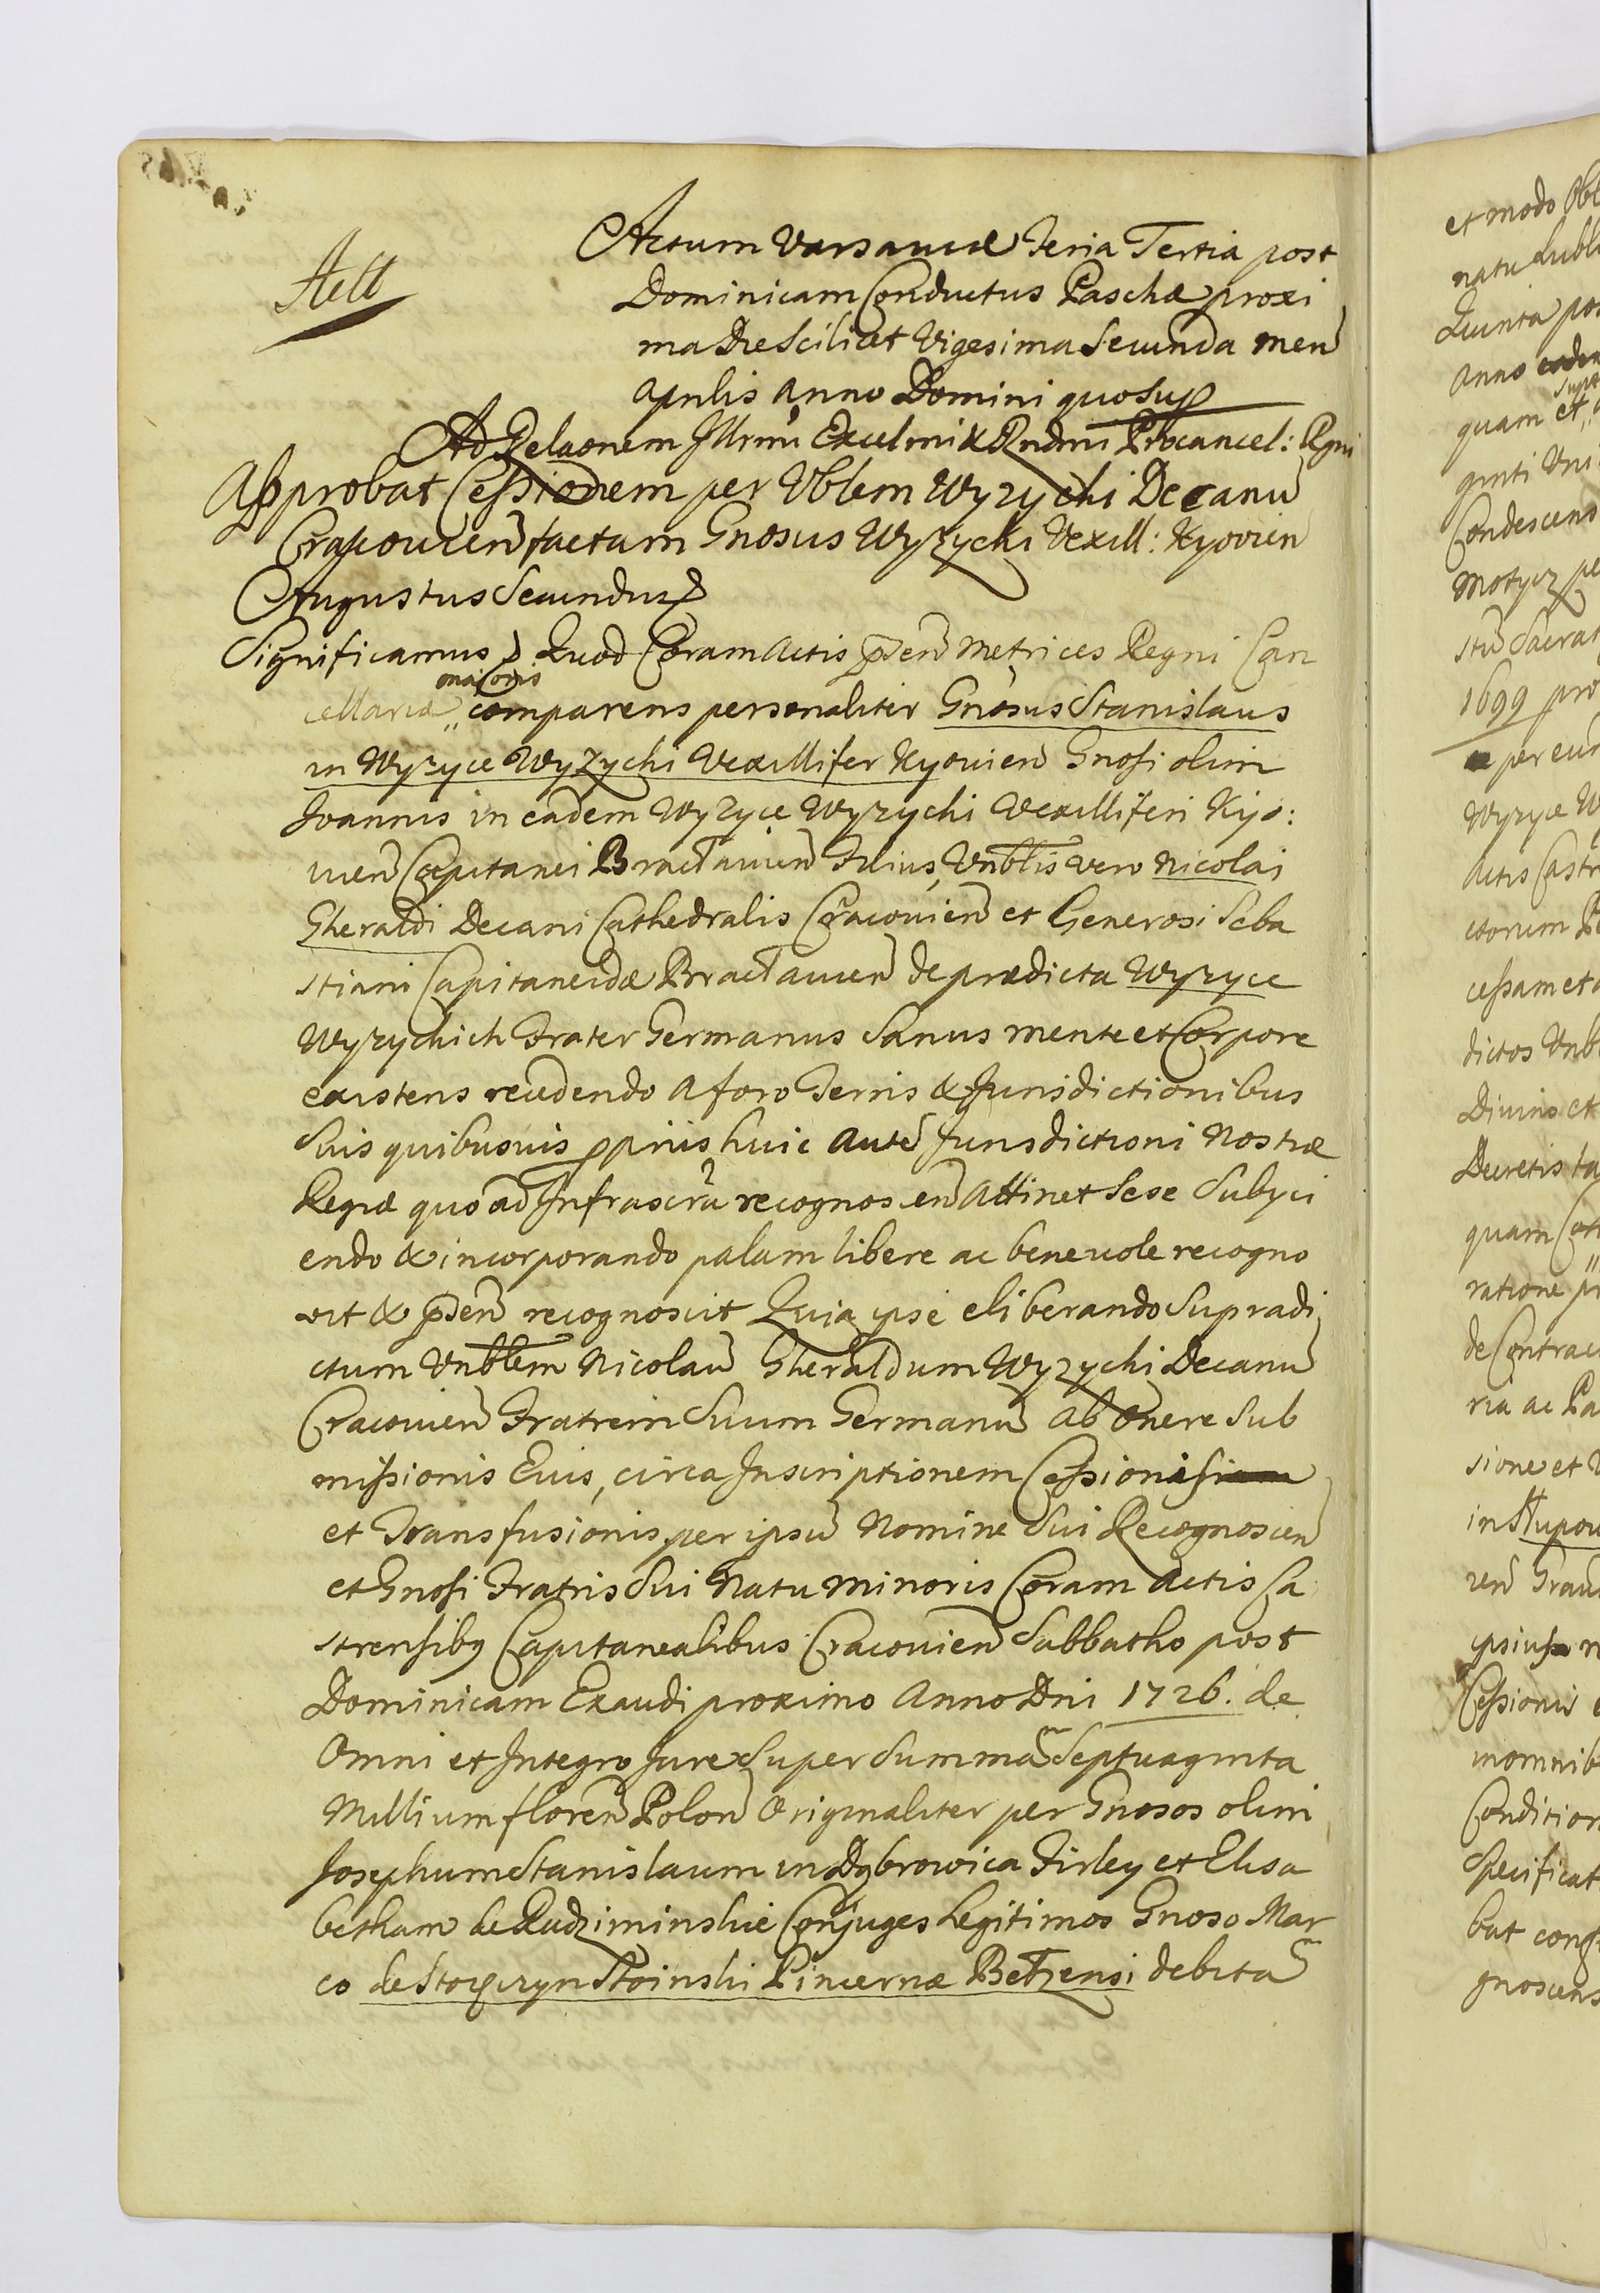 Actum Varsaviæ Feria Tertia post
Dominicam Conductus Paschæ proxi
ma Die Scilicet Vigesima Secunda Men
Aprilis Anno Domini quo Sup
Ad Relaonem Illrmi Excelmi & Rndmi Procancel: Rgni
Approbat Cessionem per Vblem Wyzycki Decanu
Cracovien factam Gnosus Wyzycki Vexill: Kyovien
Augustus Secundus
Significamus Quod Coram Actis pden Metrices Regni Can
cellariæ maioris comparens personaliter Gnosus Stanislaus
in Wyzyce Wyzycki Vexillifer Kyovien Gnosi olim
Joannis in eadem Wyzyce Wyzycki Vexilliferi Kijo:
vien Capitanei Bractavien Filius, Vnblis vero Nicolai
Gheraldi Decani Cathedralis Cracovien et Generosi Seba
stiani Capitaneidæ Bractavien de prædicta Wyzyce
Wyzyckich Frater Germanus Sanus mente et Corpore
existens recedendo a foro Terris & Jurisdictionibus
Suis quibusvis ppriis huic Aute Jurisdictioni Nostræ
Regiæ quo ad Infrascra recognoscen Attinet Sese Subyci
endo & incorporando palam libere ac benevole recogno
vit & pden recognoscit Quia ipse eliberando Supradi
ctum Vnblem Nicolau Gheraldum Wyzycki Decanu
Cracovien Fratrem Suum Germanu ab Onere Sub
missionis Eius, circa Inscriptionem Cessionis
et Transfusionis per ipsu Nomine Sui Recognoscen
et Gnosi Fratris Sui Natu minoris Coram Actis Ca
strensibq Capitanealibus Cracovien Sabbatho post
Dominicam Exaudi proximo Anno Dni 1726. de
Omni et Integro Jure Super Summa Septuaginta
Millium floren Polon Originaliter per Gnosos olim
Josephum Stanislaum in Dąbrowica Firley et Elisa
betham de Rudziminskie Conjuges Legitimos Gnoso Mar
co de Stoięczyn Stoinski Pincernæ Bełzensi debita
et modo
natu Lubl
Quinta pos
Anno
quam et
ginti Vni
Condescens
Motycz pe
Sacrat
1699 pro
per eun
Wyzyce W
Actis Castr
ctorum
cessam et
dictos Vnb
Divino et
Decretis
quam
ratione
de Contrac
ria ac Pa
sione et
in
ren
Cessionis
inomnib
Condition
Specificat
bat
gnoscens